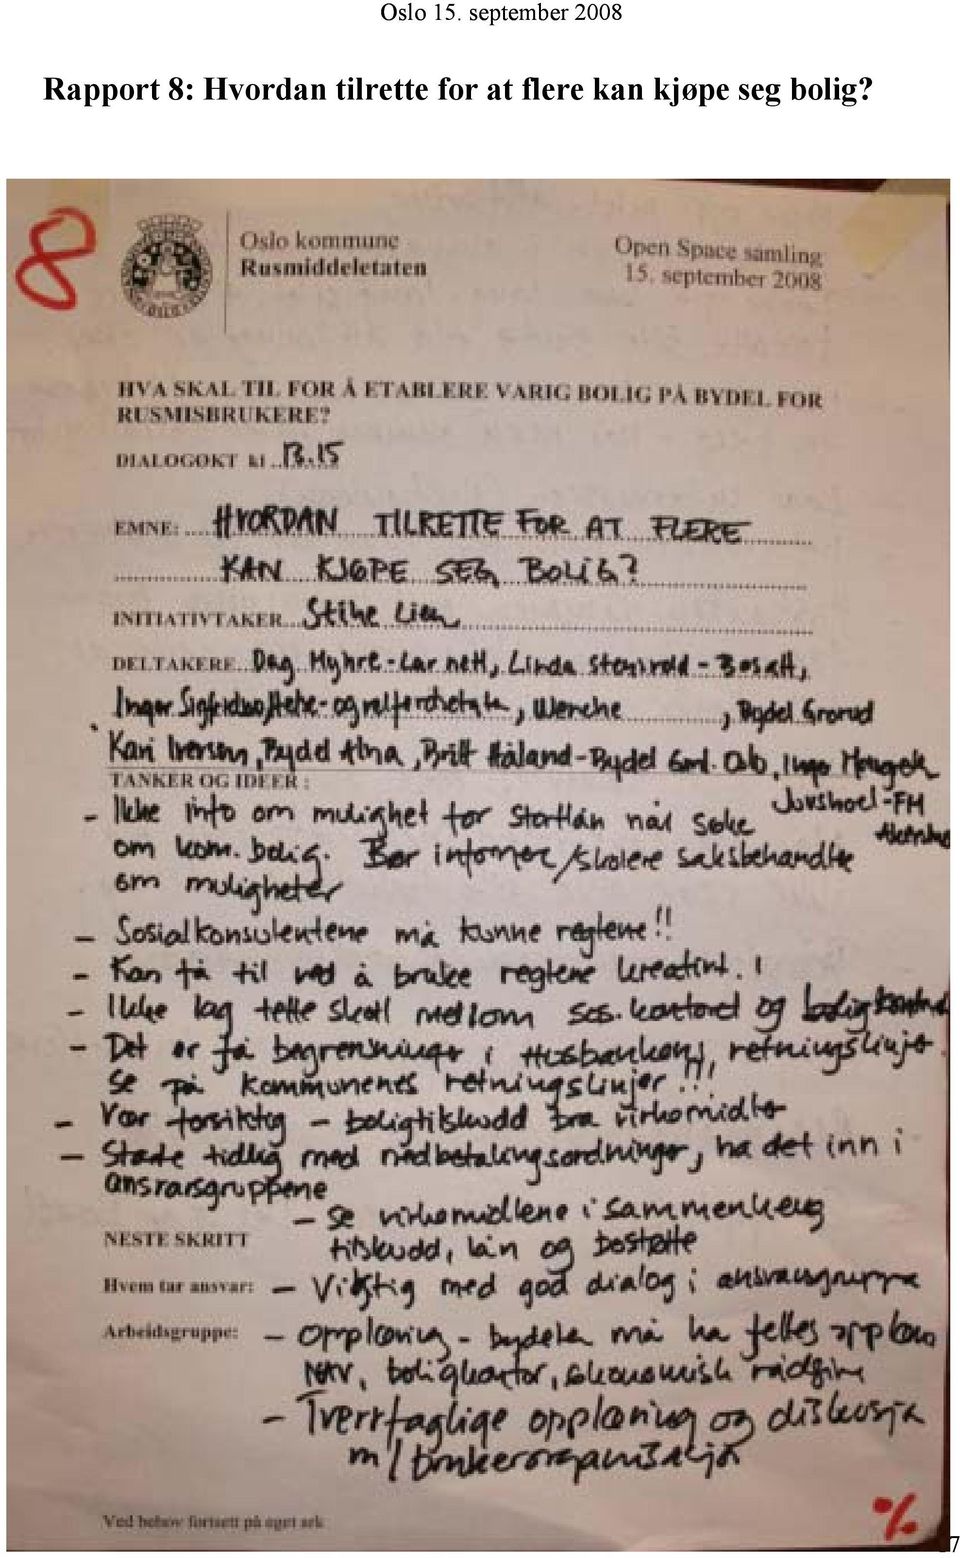 Oslo 15. september 2008
Rapport 8: Hvordan tilrette for at flere kan kjøpe seg bolig?
8
Oslo kommune
Rusmiddeletaten
Open Space samling
15. september 2008
OSLO
HVA SKAL TIL FOR Å ETABLERE VARIG BOLIG PÅ BYDEL FOR
RUSMISBRUKERE?
DIALOGØKT kl ..13.15
EMNE: ..... HVORDAN TILRETTE FOR AT FLERE
KAN KJØPE SEG BOLIG?
INITIATIVTAKER... Stine Lien
DELTAKERE... Dag Myhre - Larnett, Linda - ,
Inger , Wenche , Bydel Grorud
Kari Iversen, Bydel Alna, Britt Håland - Bydel Gml. Oslo, Inga
TANKER OG IDEER :
- FM
- Ikke info om mulighet for Startlån når søke
om kom. bolig. Bør informere/skolere saksbehandlere
om muligheter
- Sosialkonsulentene må kunne reglene!!
- Kan få til ved å bruke reglene kreativt. !
- Ikke lag tette skott mellom sos. kontoret og boligkontoret
- Det er få begrensninger i Husbankens retningslinjer.
Se på kommunenes retningslinjer!!!
- Vær forsiktig - boligtilskudd bra virkemidler
- Starte tidlig med nedbetalingsordninger, ha det inn i
ansvarsgruppene
- Se virkemidlene i sammenheng
NESTE SKRITT
tilskudd, lån og bostøtte
Hvem tar ansvar: - Viktig med god dialog i ansvarsgruppe
Arbeidsgruppe: - Opplæring - bydeler må ha felles opplæring
NAV, boligkontor, økonomisk rådgivn
- Tverrfaglige opplæring og diskusjon
m/ brukerorganisasjon
Ved behov fortsett på eget ark
%
7